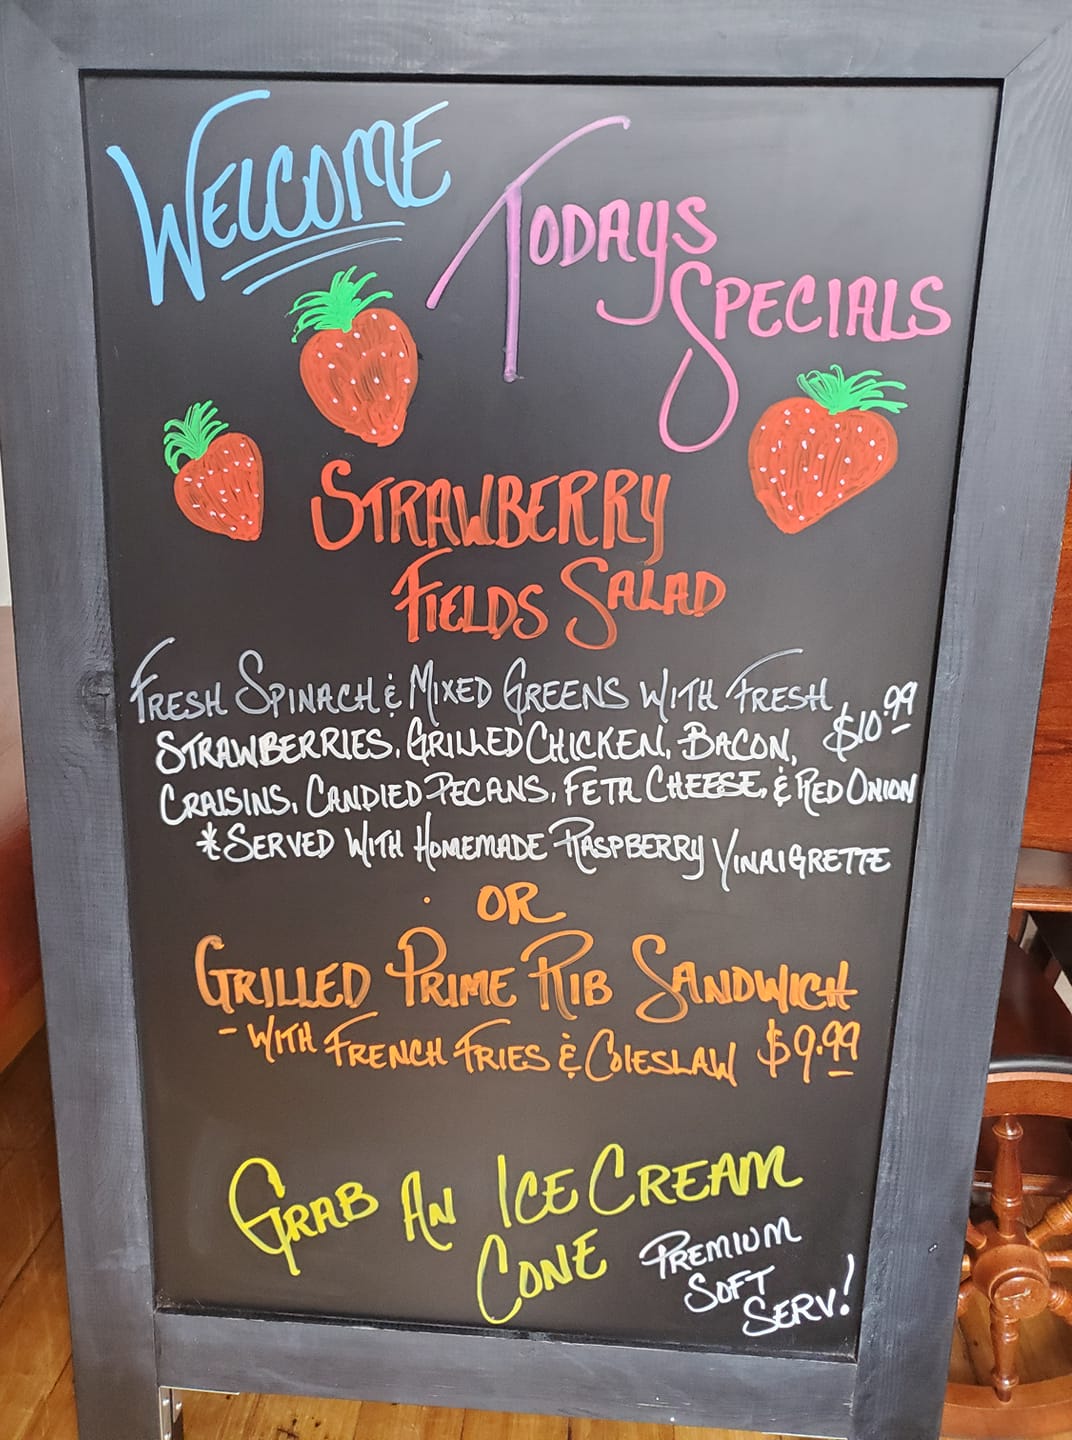 WELCOME
TODAYS
SPECIALS
STRAWBERRY
FIELDS SALAD
FRESH SPINACH & MIXED GREENS WITH FRESH
STRAWBERRIES, GRILLED CHICKEN, BACON, $10.99
CRAISINS, CANDIED PECANS, FETA CHEESE, & RED ONION
*SERVED WITH HOMEMADE RASPBERRY VINAIGRETTE
OR
GRILLED PRIME RIB SANDWICH
- WITH FRENCH FRIES & COLESLAW $9.99
GRAB AN ICE CREAM
CONE
PREMIUM
SOFT
SERV!